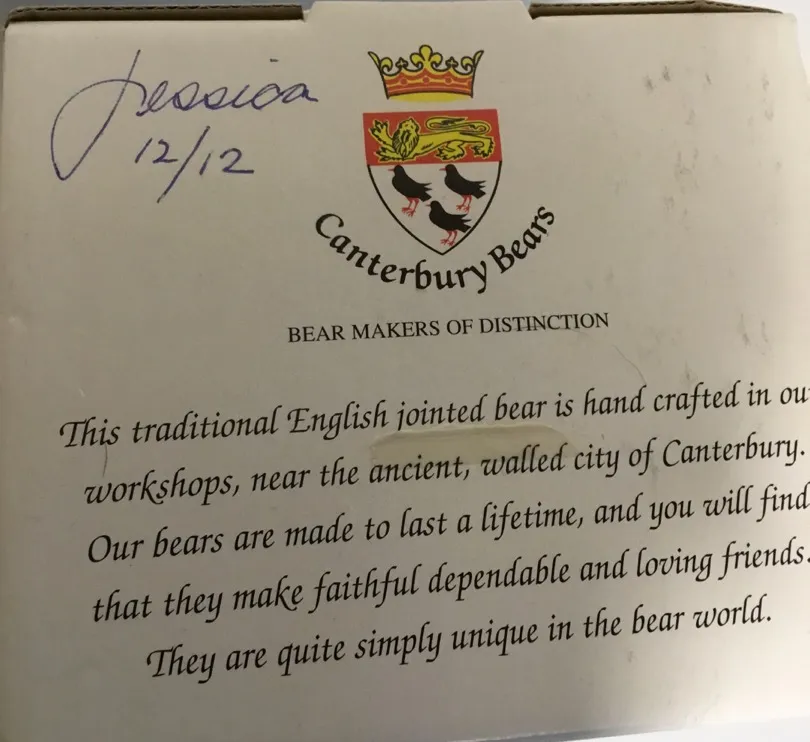 Jessica
12/12
Canterbury Bears
BEAR MAKERS OF DISTINCTION
This traditional English jointed bear is hand crafted in our
workshops, near the ancient, walled city of Canterbury.
Our bears are made to last a lifetime, and you will find
that they make faithful dependable and loving friends.
They are quite simply unique in the bear world.